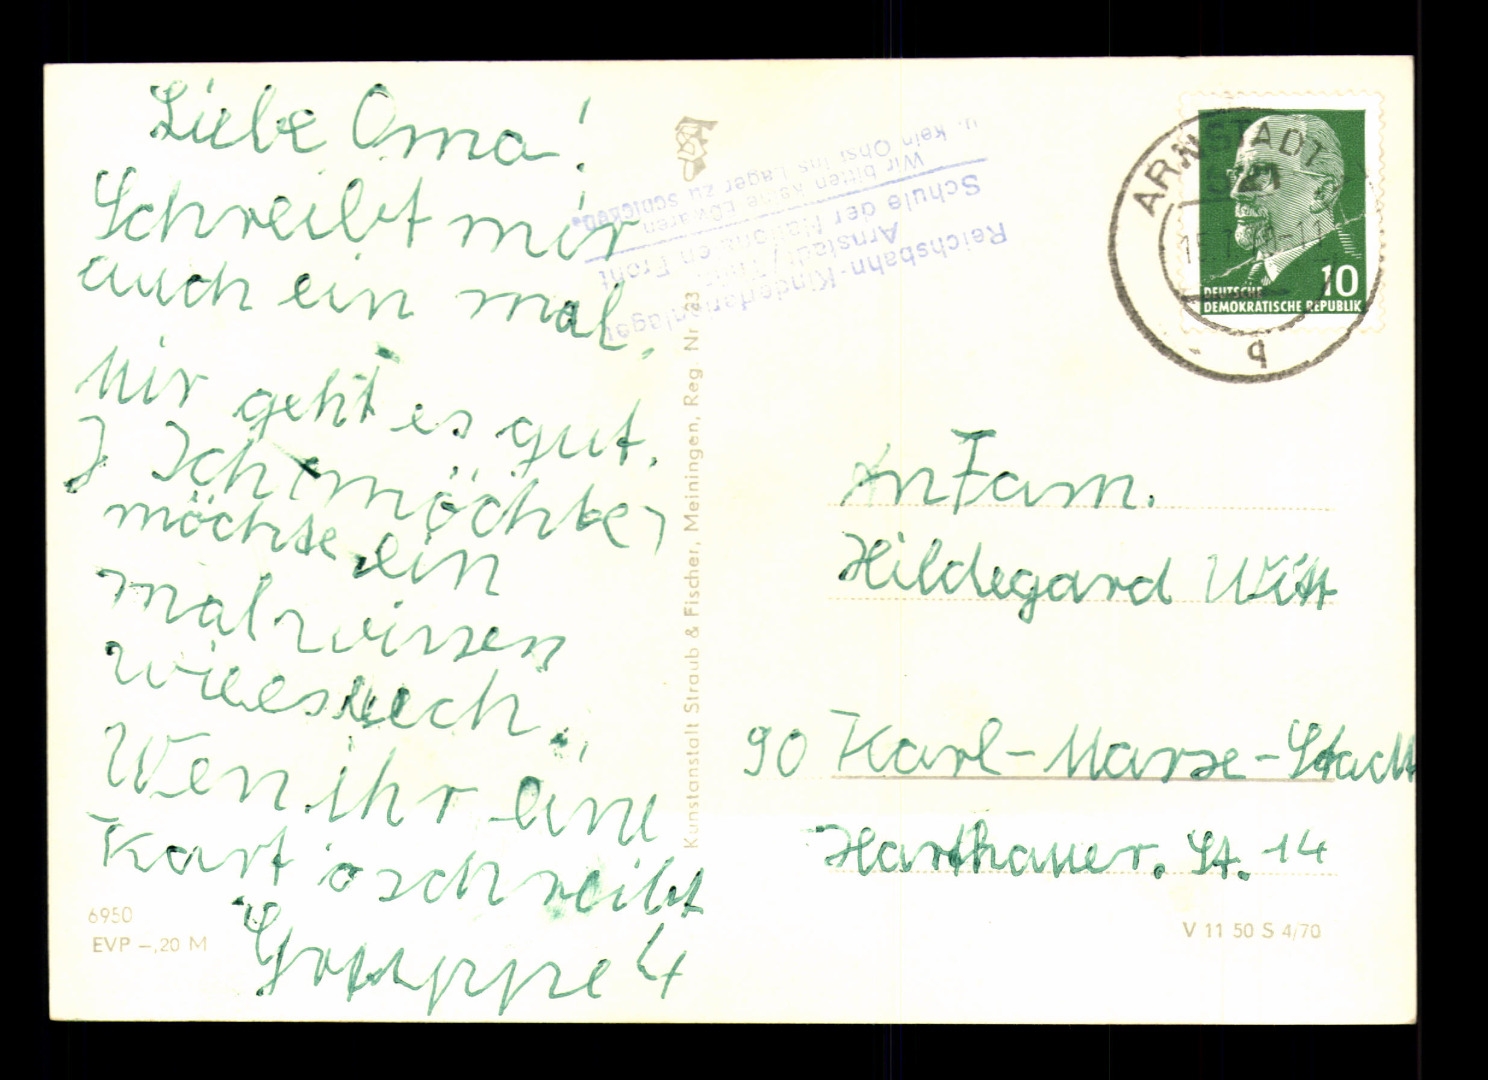 Liebe Oma!
Schreibt mir
auch ein mal.
Mir geht es gut.
Ich möchte
möchte ein
mal wissen
wie es euch
Wen ihr eine
Kart schreibt
Gruppe 4
6950
EVP –,20 M
Kunstanstalt Straub & Fischer, Meiningen, Reg. Nr.
Reichsbahn-Kinderferienlager
Arnstadt/Thür.
Schule der Nationalen Front
Wir bitten keine Eßwaren
u. kein Obst ins Lager zu schicken.
ARNSTADT
10
DEUTSCHE
DEMOKRATISCHE REPUBLIK
q
An Fam.
Hildegard Witt
90 Karl-Marx-Stadt
Harthauer. St. 14
V 11 50 S 4/70